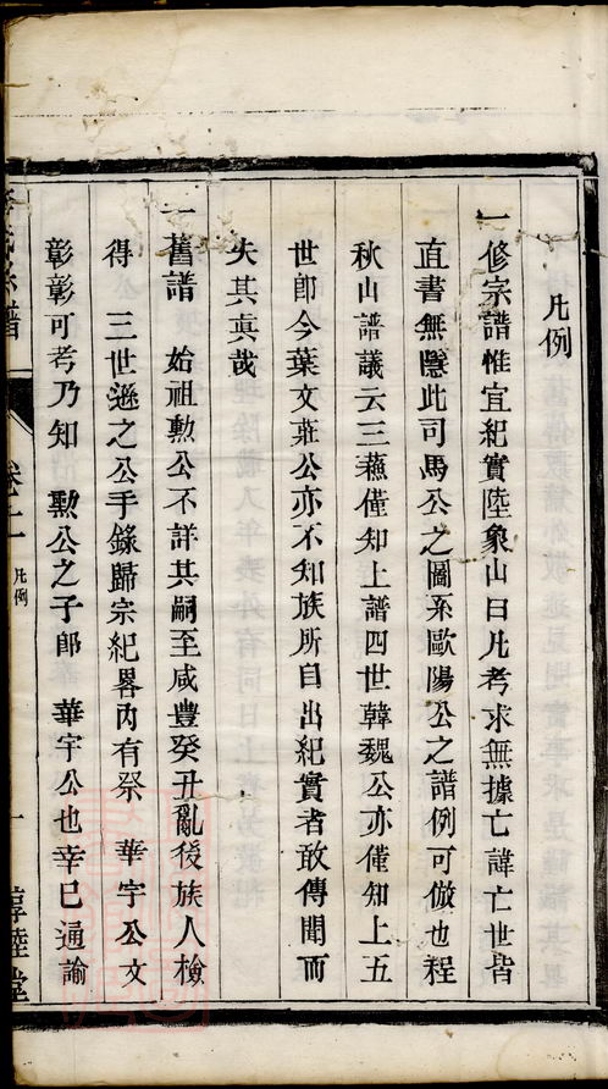 凡例
一修宗譜惟宜紀實陸象山曰凡考求無據亡諱亡世皆
直書無隱此司馬公之圖系歐陽公之譜例可倣也程
秋山譜議云三蘓僅知上譜四世韓魏公亦僅知上五
世郎今葉文莊公亦不知族所自出紀實者敢傳聞而
失其眞哉
一舊譜 始祖勲公不詳其嗣至咸豊癸丑亂後族人檢
得 三世遜之公手錄歸宗紀畧內有祭 華宇公文
彰彰可考乃知 勲公之子郎 華宇公也幸已通諭
氏宗譜 卷 凡例 一 惇睦堂